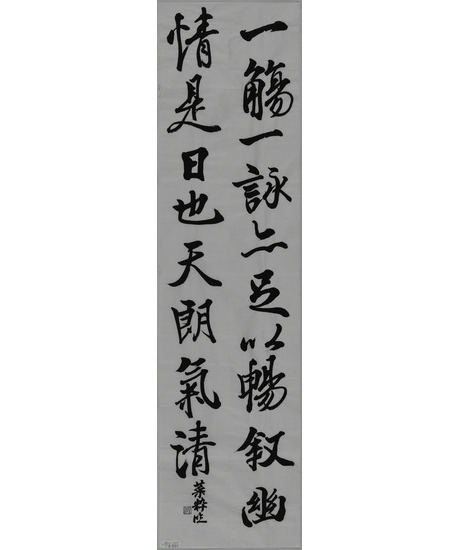 一觴一詠亦足以暢叙幽
情是日也天朗氣清